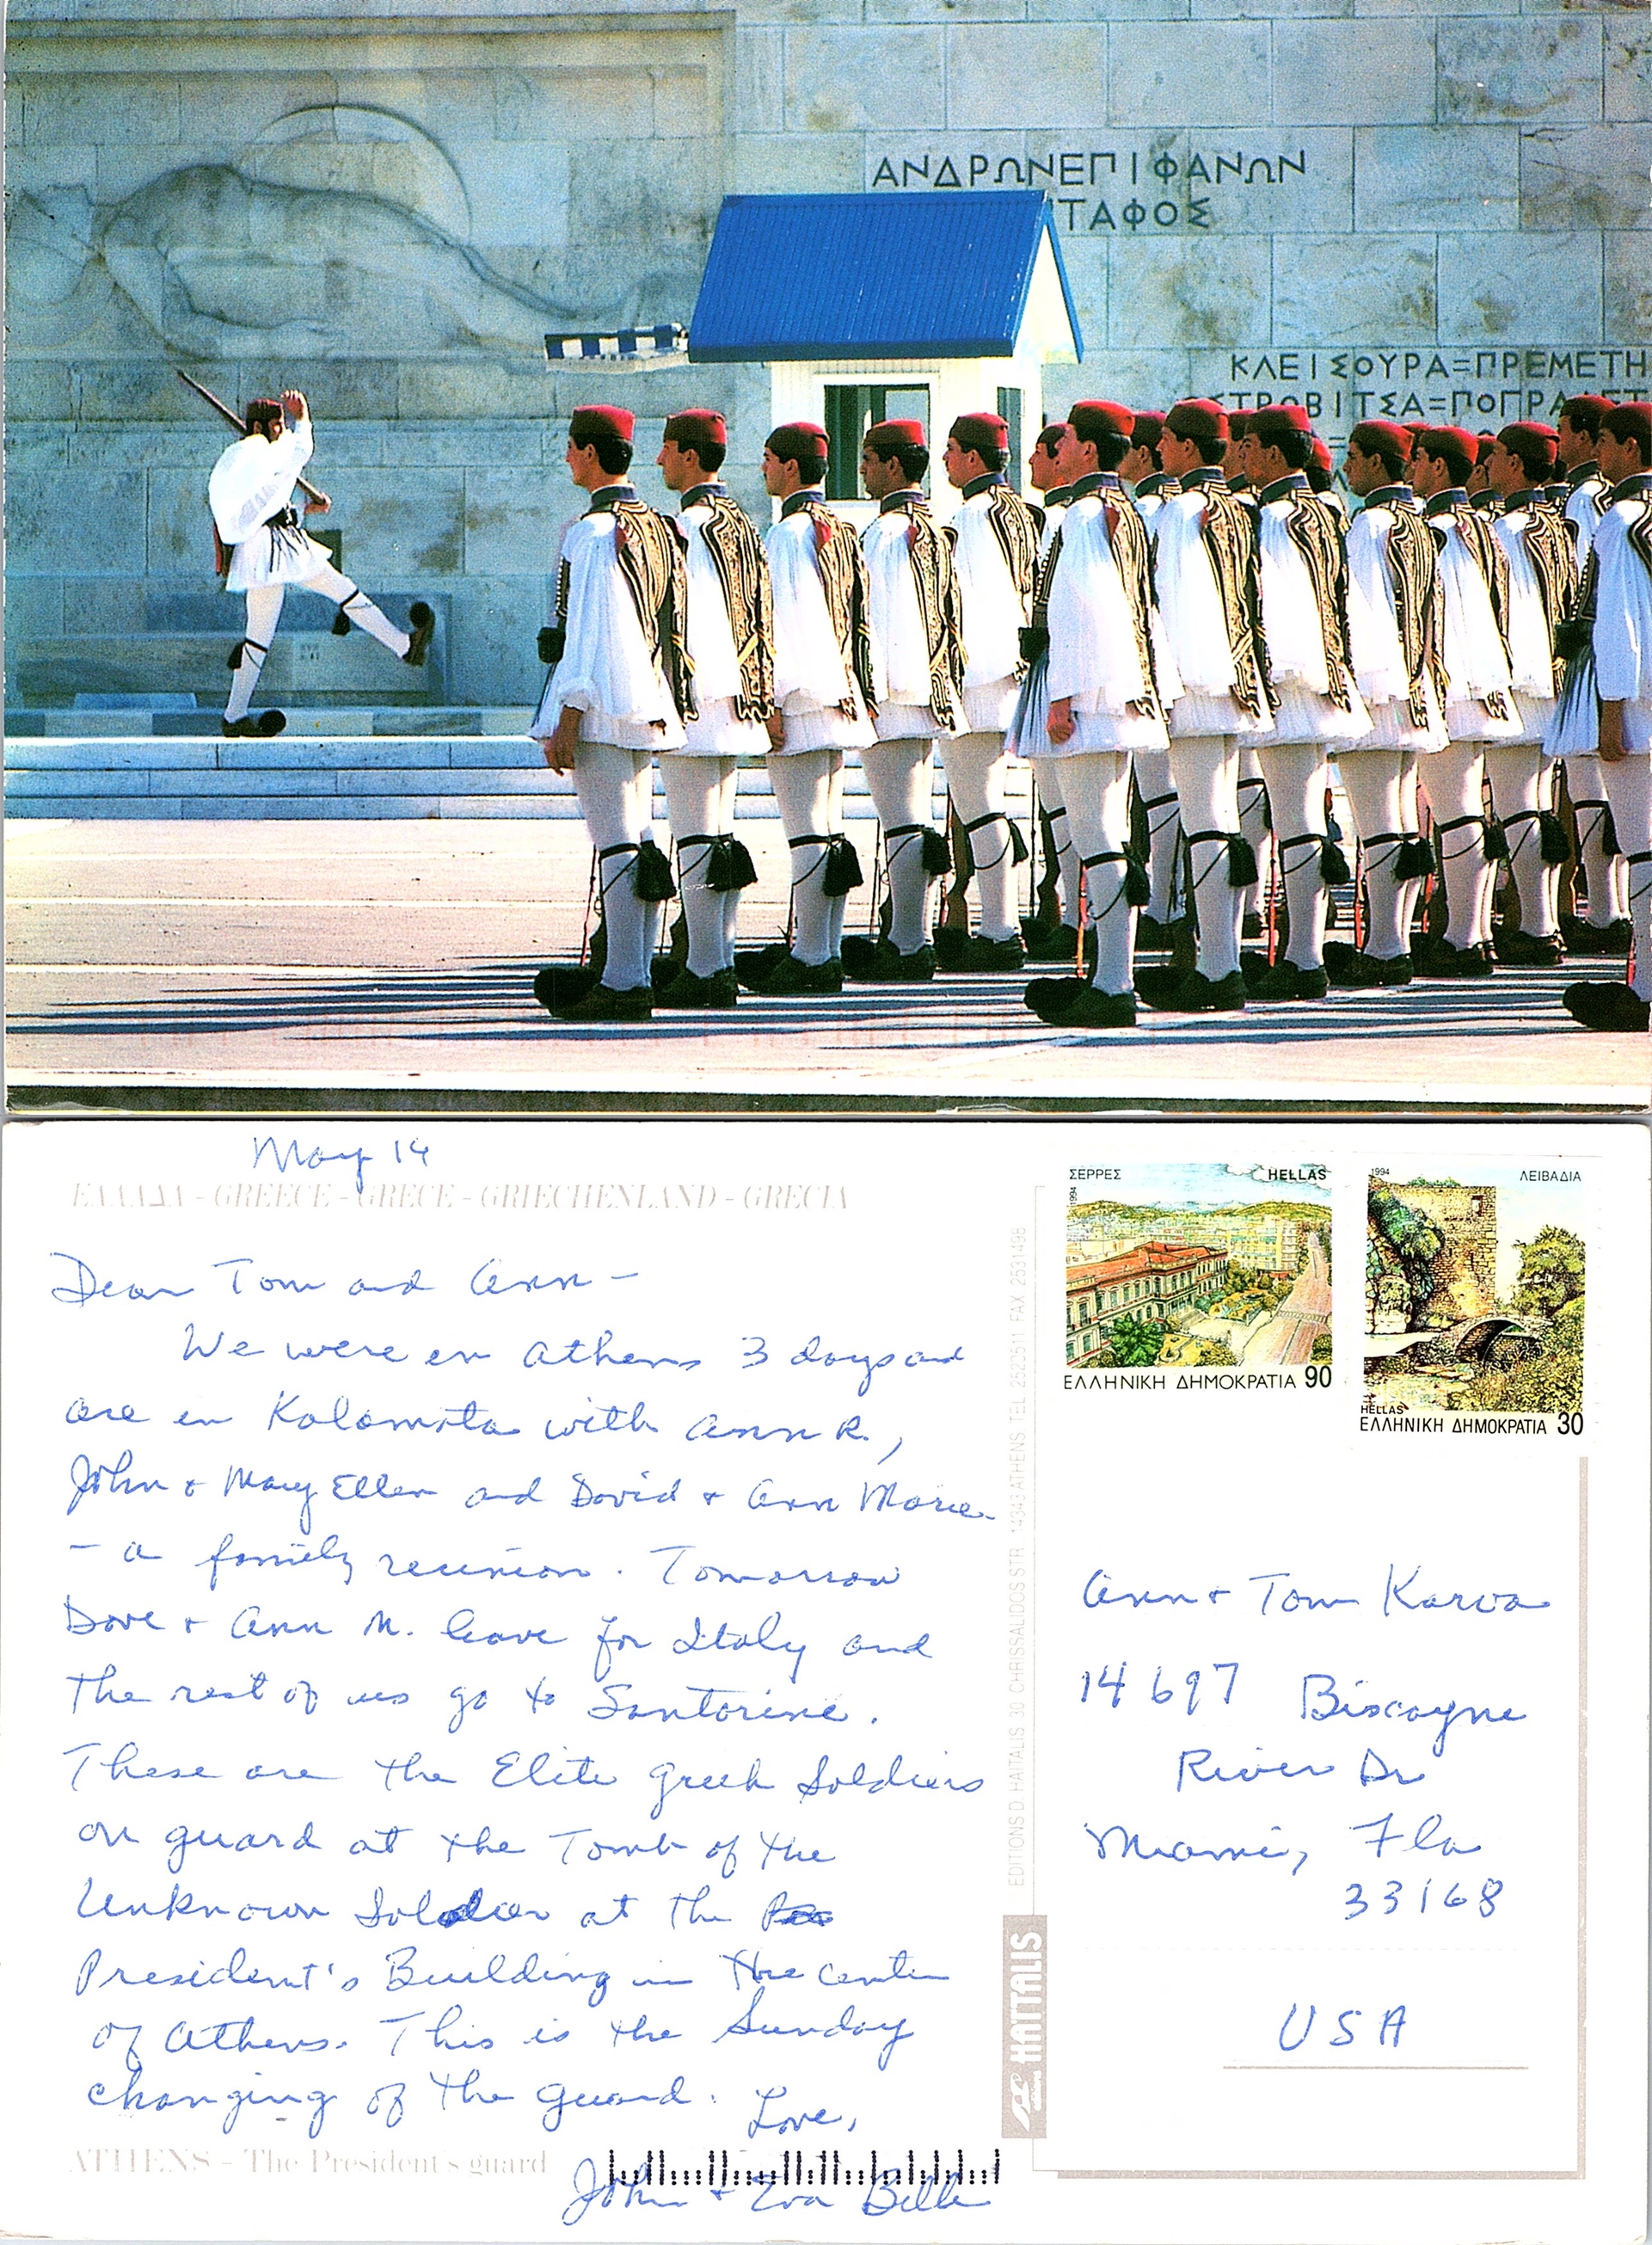 ΑΝΔΡΩΝΕΠΙΦΑΝΩΝ
ΤΑΦΟΣ
ΚΛΕΙΣΟΥΡΑ=ΠΡΕΜΕΤΗ
ΣΤΡΟΒΙΤΣΑ=ΠΟΓΡΑ
May 14
ΕΛΛΑΔΑ - GREECE - GRECE - GRIECHENLAND - GRECIA
Dear Tom and Ann -
We were in Athens 3 days and
are in Kalamata with Ann R.,
John & Mary Ellen and David & Ann Marie
- a family reunion. Tomorrow
Dave & Ann M. leave for Italy and
the rest of us go to Santorini.
These are the Elite Greek Soldiers
on guard at the Tomb of the
Unknown Soldier at the
President's Building in the center
of Athens. This is the Sunday
changing of the guard. Love,
John & Eva Belle
ATHENS - The President's guard
EDITIONS D. HAITALIS 30 CHRISSALIDOS STR. 14343 ATHENS TEL. 2522511 FAX 2531498
HAITALIS
ΣΕΡΡΕΣ HELLAS
1994
ΕΛΛΗΝΙΚΗ ΔΗΜΟΚΡΑΤΙΑ 90
1994 ΛΕΙΒΑΔΙΑ
HELLAS
ΕΛΛΗΝΙΚΗ ΔΗΜΟΚΡΑΤΙΑ 30
Ann & Tom Karva
14697 Biscayne
River Dr
Miami, Fla
33168
USA